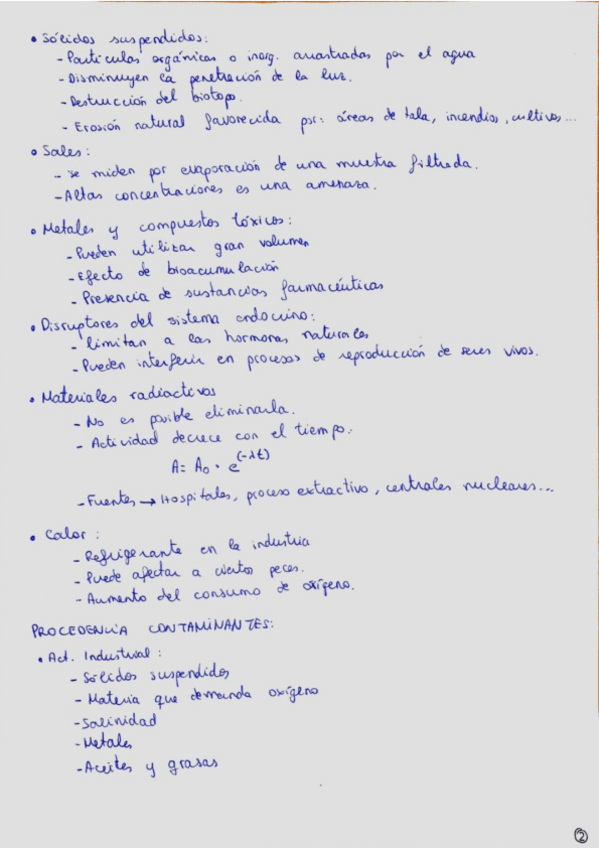 • Sólidos suspendidos:
- Partículas orgánicas o inorg. arrastradas por el agua
- Disminuyen la penetración de la luz.
- Destrucción del biotopo.
- Erosión natural favorecida por: áreas de tala, incendios, cultivos...
• Sales:
- Se miden por evaporación de una muestra filtrada.
- Altas concentraciones es una amenaza.
• Metales y compuestos tóxicos:
- Pueden utilizar gran volumen
- Efecto de bioacumulación
- Presencia de sustancias farmacéuticas
• Disruptores del sistema endocrino:
- limitan a las hormonas naturales
- Pueden interferir en procesos de reproducción de seres vivos.
• Materiales radiactivos
- No es posible eliminarla.
- Actividad decrece con el tiempo:
A = A₀ · e^(-λt)
- Fuentes → Hospitales, proceso extractivo, centrales nucleares...
• Calor:
- Refrigerante en la industria
- Puede afectar a ciertos peces.
- Aumento del consumo de oxígeno.
PROCEDENCIA CONTAMINANTES:
• Act. Industrial:
- Sólidos suspendidos
- Materia que demanda oxígeno
- Salinidad
- Metales
- Aceites y grasas
2